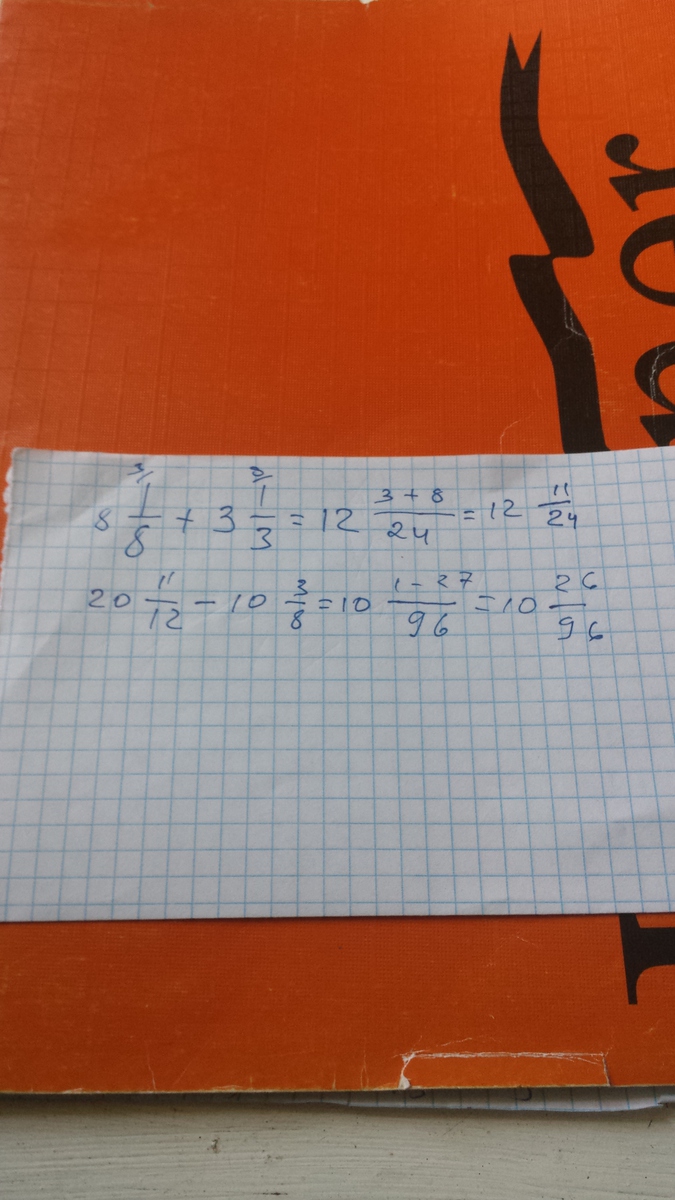 8 3/ 1/8 + 3 8/ 1/3 = 12 (3+8)/24 = 12 11/24
20 11/12 - 10 3/8 = 10 (1-27)/96 = 10 26/96